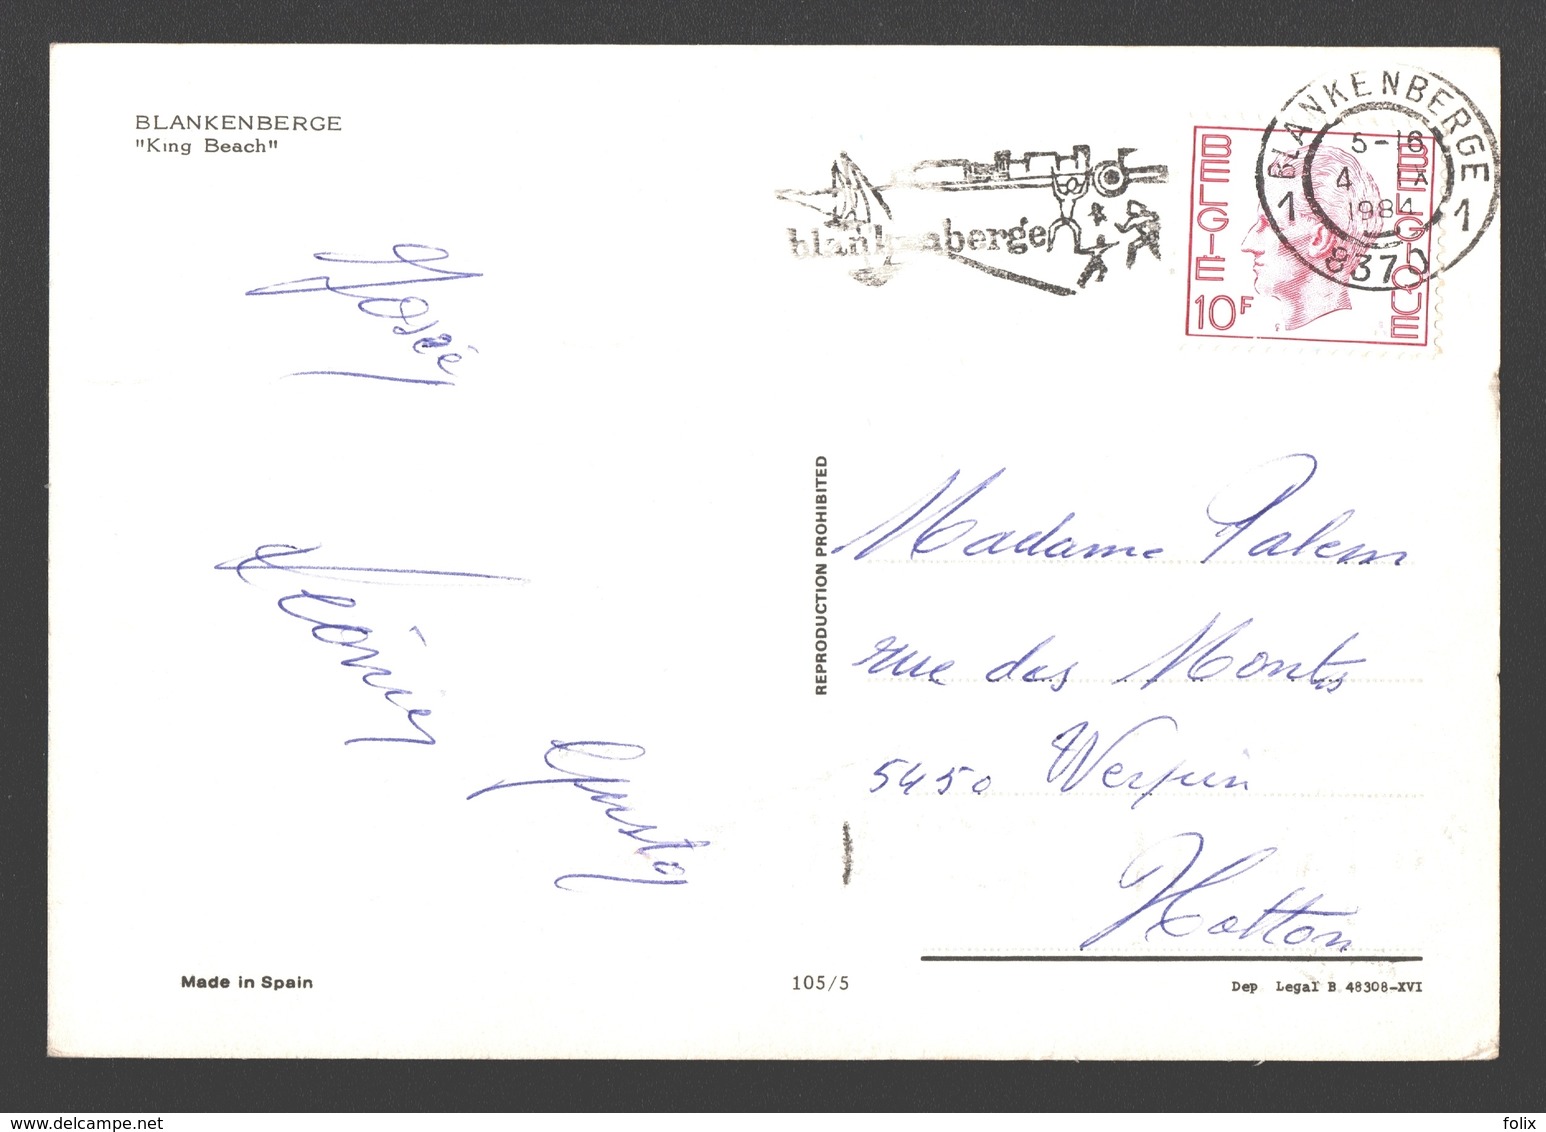 BLANKENBERGE
"King Beach"
BLANKENBERGE
5-16
4
1984
1 1
8370
blankenberge
BELGIE
BELGIQUE
10F
Josée
Gusto
REPRODUCTION PROHIBITED
Madame Palem
rue des Monts
5450 Werpin
Hotton
Made in Spain
105/5
Dep Legal B. 48308-XVI
www.delcampe.net
folix